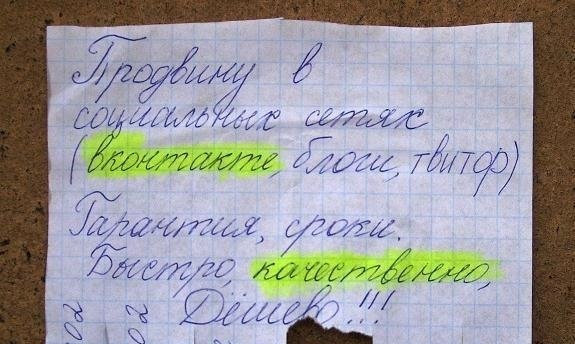 Продвину в
социальных сетях
(вконтакте, блоги, твитор)
Гарантия, сроки.
Быстро, качественно,
Дёшево!!!
02
02